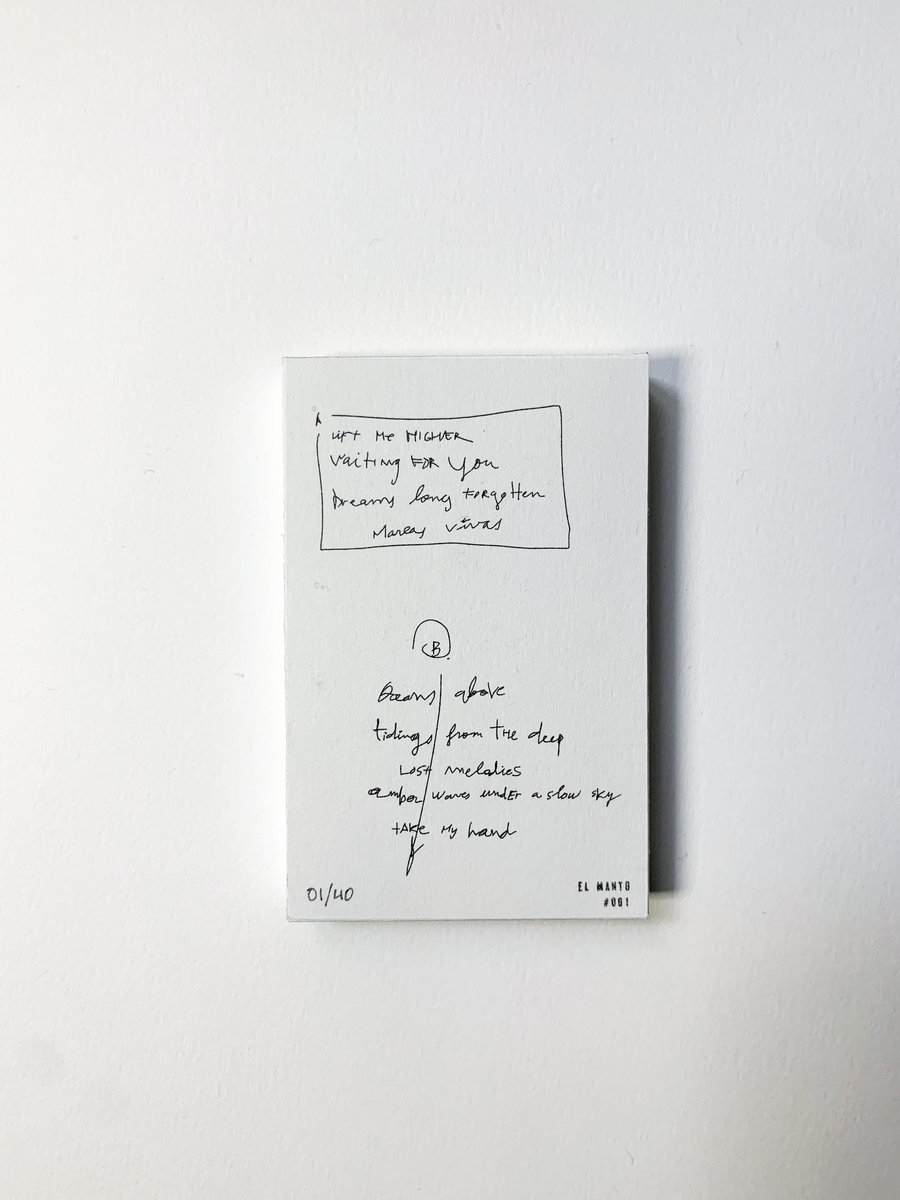 A
Lift Me HIGHER
Waiting FOR You
Dreams long FORgotten
Mareas vivas
B.
Oceans above
tidings from THE deep
Lost melodies
amber waves undEr a slow sky
tAKe My hand
01/40
EL MANTO
#001